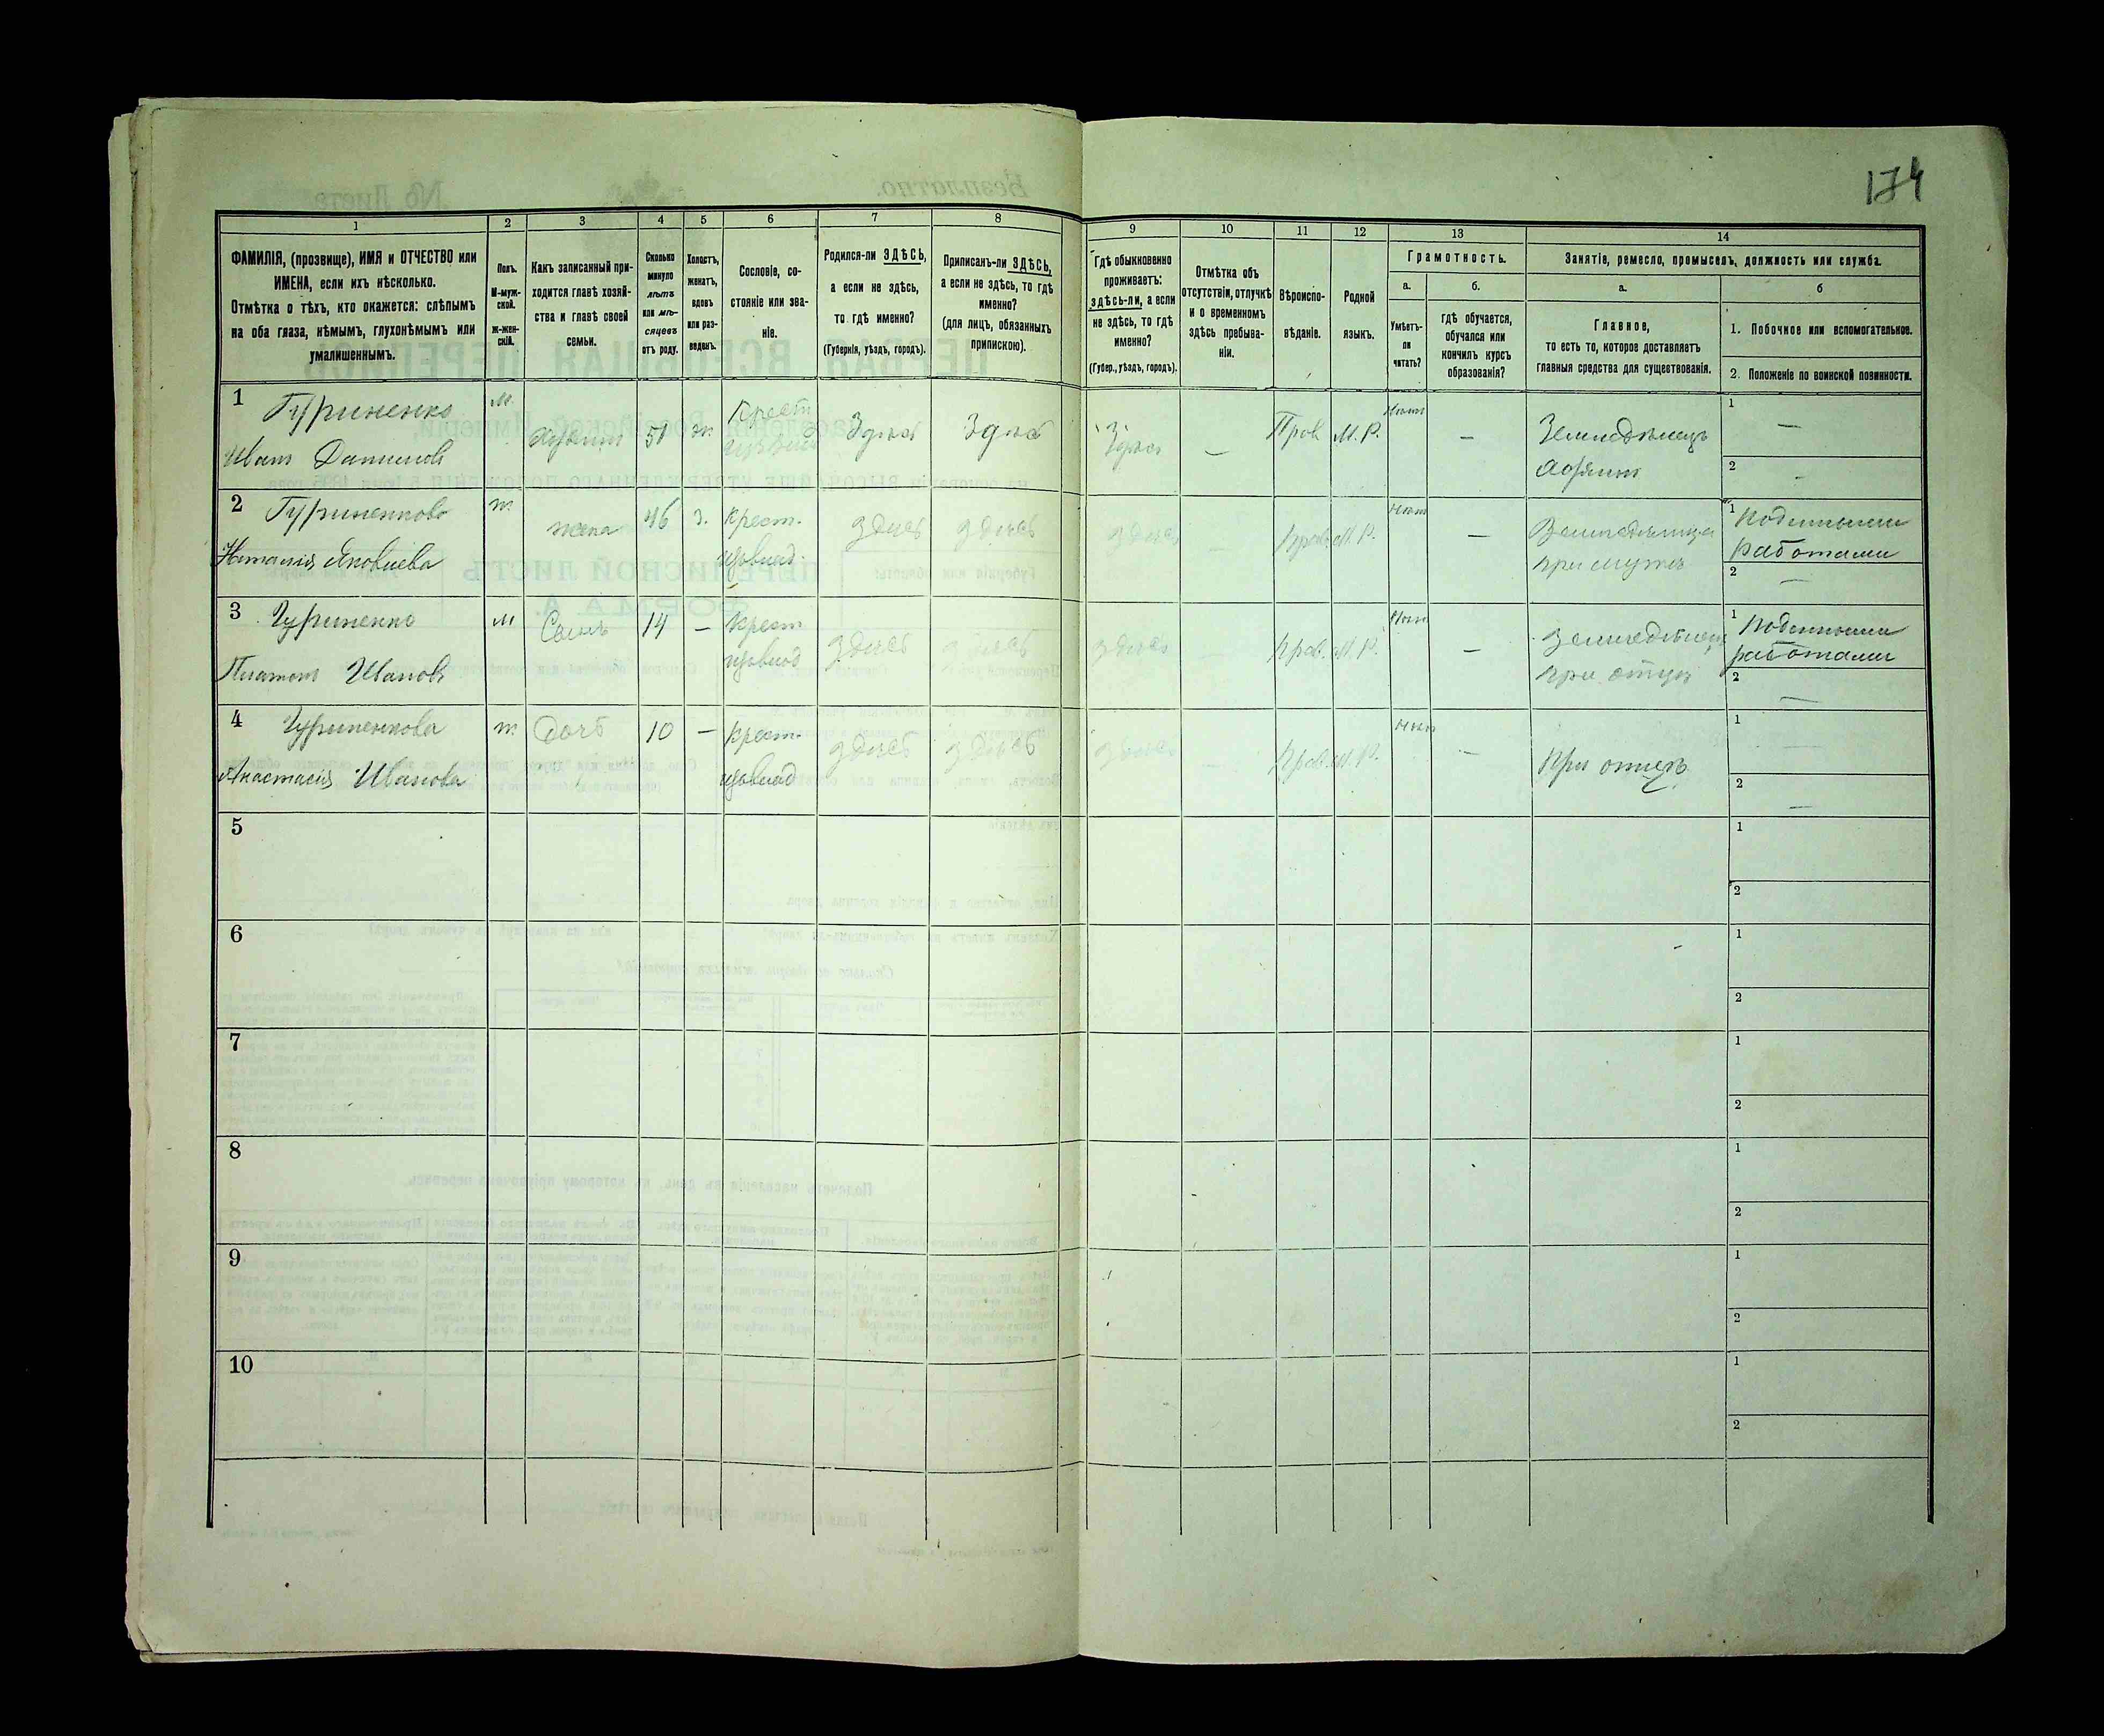 174
1 2 3 4 5 6 7 8 9 10 11 12 13 14
ФАМИЛІЯ, (прозвище), ИМЯ и ОТЧЕСТВО или
ИМЕНА, если ихъ нѣсколько.
Отмѣтка о тѣхъ, кто окажется: слѣпымъ
на оба глаза, нѣмымъ, глухонѣмымъ или
умалишеннымъ.
Полъ.
М-муж-
ской.
ж-жен-
скій.
Какъ записанный при-
ходится главѣ хозяй-
ства и главѣ своей
семьи.
Сколько
минуло
лѣтъ
или мѣ-
сяцевъ
отъ роду.
Холостъ,
женатъ,
вдовъ
или раз-
веденъ.
Сословіе, со-
стояніе или зва-
ніе.
Родился-ли ЗДѢСЬ,
а если не здѣсь,
то гдѣ именно?
(Губернія, уѣздъ, городъ).
Приписанъ-ли ЗДѢСЬ,
а если не здѣсь, то гдѣ
именно?
(для лицъ, обязанныхъ
припискою).
Гдѣ обыкновенно
проживаетъ:
здѣсь-ли, а если
не здѣсь, то гдѣ
именно?
(Губер., уѣздъ, городъ).
Отмѣтка объ
отсутствіи, отлучкѣ
и о временномъ
здѣсь пребыва-
ніи.
Вѣроиспо-
вѣданіе.
Родной
языкъ.
Грамотность.
а.
Умѣетъ-
ли
читать?
б.
гдѣ обучается,
обучался или
кончилъ курсъ
образованія?
Занятіе, ремесло, промыселъ, должность или служба.
а.
Главное,
то есть то, которое доставляетъ
главныя средства для существованія.
б
1. Побочное или вспомогательное.
2. Положеніе по воинской повинности.
1 Гуриненко
Иванъ Даниловъ
м. хозяинъ 51 ж.
Крест
Здѣсь Здѣсь Здѣсь — Прав М.Р. нѣтъ —
Земледѣлецъ
хозяинъ
1 —
2 -
2 Гуриненкова
Наталія Яковлева
ж. жена 46 з. Крест.
изъ влад.
здѣсь здѣсь здѣсь — Прав. М.Р. нѣтъ —
Земледѣлица
при мужѣ
1 поденными
работами
2 —
3 Гуриненко
Платонъ Ивановъ
м Сынъ 14 — Крест
изъ влад
здѣсь здѣсь здѣсь — Прав. М.Р. нѣтъ —
земледѣлецъ
при отцѣ
1 поденными
работами
2 —
4 Гуриненкова
Анастасія Иванова
ж. Дочь 10 — Крест.
изъ влад
здѣсь здѣсь здѣсь — Прав. М.Р. нѣтъ —
При отцѣ
1 —
2 —
5
1
2
6
1
2
7
1
2
8
1
2
9
1
2
10
1
2